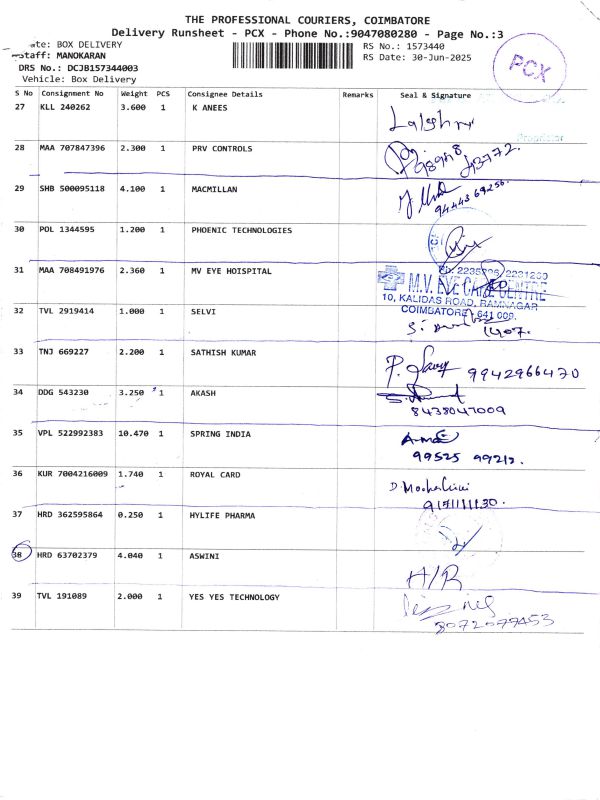 THE PROFESSIONAL COURIERS, COIMBATORE
Delivery Runsheet - PCX - Phone No.:9047080280 - Page No.:3
ate: BOX DELIVERY
RS No.: 1573440
staff: MANOKARAN
RS Date: 30-Jun-2025
DRS No.: DCJB157344003
Vehicle: Box Delivery
PCX
S No Consignment No Weight PCS Consignee Details Remarks Seal & Signature
27 KLL 240262 3.600 1 K ANEES
Proprietor
28 MAA 707847396 2.300 1 PRV CONTROLS
29 SHB 500095118 4.100 1 MACMILLAN
30 POL 1344595 1.200 1 PHOENIC TECHNOLOGIES
31 MAA 708491976 2.360 1 MV EYE HOISPITAL
M.V. EYE CARE CENTRE
10, KALIDAS ROAD, RAMNAGAR
COIMBATORE - 641 009.
32 TVL 2919414 1.000 1 SELVI
33 TNJ 669227 2.200 1 SATHISH KUMAR
9942966470
34 DDG 543230 3.250 1 AKASH
8438047009
35 VPL 522992383 10.470 1 SPRING INDIA
36 KUR 7004216009 1.740 1 ROYAL CARD
37 HRD 362595864 0.250 1 HYLIFE PHARMA
38 HRD 63702379 4.040 1 ASWINI
H/R
39 TVL 191089 2.000 1 YES YES TECHNOLOGY
8072079453